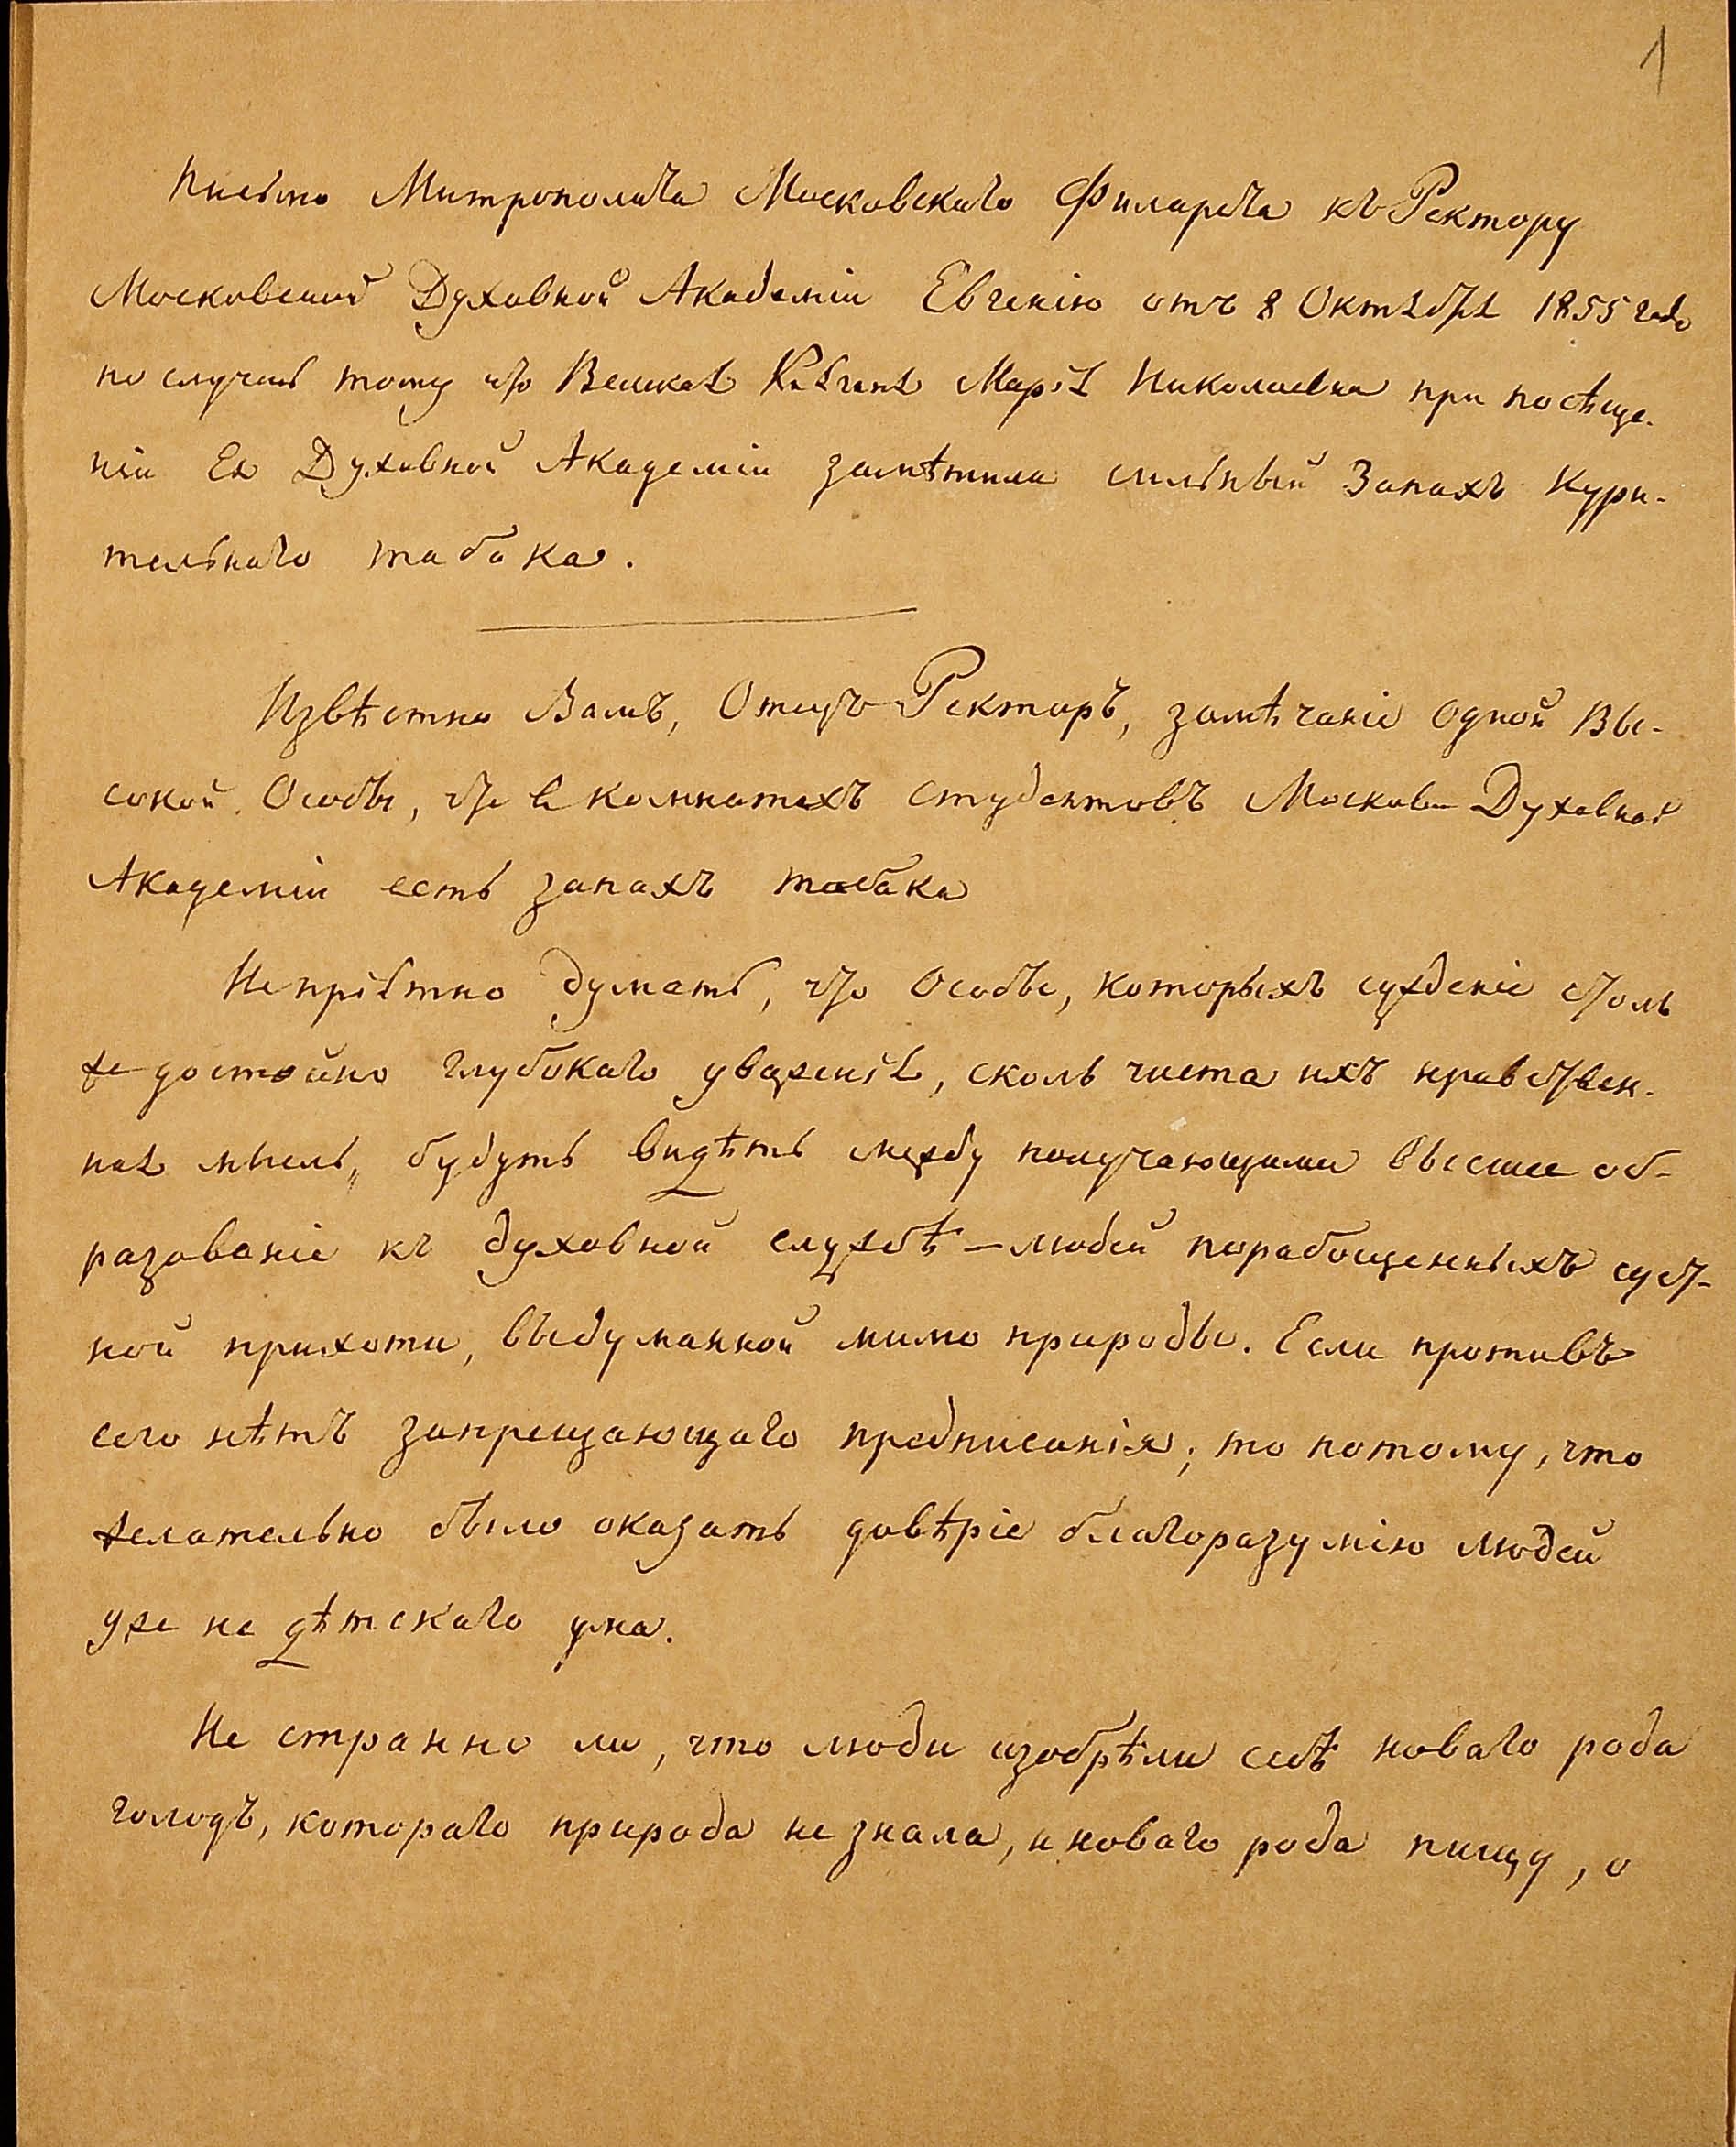 1
Письмо Митрополита Московскаго Филарета къ Ректору
Московской Духовной Академіи Евгенію отъ 8 Октября 1855 года
по случаю тому что Великая Княгиня Марія Николаевна при посѣще-
ніи Ея Духовной Академіи замѣтила сильный Запахъ Кури-
тельнаго табака.
Извѣстно Вамъ, Отецъ Ректоръ, замѣчаніе одной Вы-
сокой Особы, что в комнатахъ студентовъ Москов Духовной
Академіи есть запахъ табака
Непріятно думать, что Особы, которыхъ сужденіе столь
же достойно глубокаго уваженія, сколь чиста ихъ нравствен-
ная мысль, будутъ видѣть между получающими высшее об-
разованіе къ духовной службѣ – людей порабощенныхъ сует-
ной прихоти, выдуманной мимо природы. Если противъ
сего нѣтъ запрещающаго предписанія; то потому, что
желательно было оказать довѣріе благоразумію людей
уже не дѣтскаго ума.
Не странно ли, что люди изобрѣли себѣ новаго рода
голодъ, котораго природа не знала, и новаго рода пищу, о